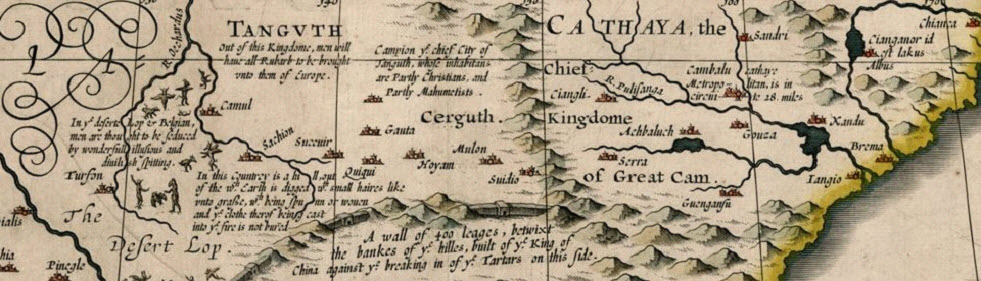 TANGVTH
out of this Kingdome, men will
haue all Rubarb to be brought
vnto them of Europe.
Campion yᵉ chief City of
Tanguth, whose inhabitans
are Partly Christians, and
Partly Mahumetists.
CATHAYA, the
Chief
Kingdome
of Great Cam.
Sandri
Cianganor id
est lakus
Albus
Chianca
Cambalu Cathaye
Metropolitan, is in
circuit 28. miles
R. Pulisanga
Ciangli
Achbaluch
Gouza
Xandu
Brema
Serra
Iangio
Guengangu
Camul
In yᵉ deserte Lop & Belgian,
men are thought to be seduced
by wonderfull illusions and
diuilish spitting.
Sachion
Succuir
Gauta
Cerguth.
Mulon
Hoyam
Quiqui
Suidio
Turfon
In this countrey is a hill out
of the wᶜʰ Earth is digged wᵗʰ small haires like
vnto grasse, wᶜʰ being spunn or wouen
and yᵉ clothe therof being cast
into yᵉ fire is not burned
The
Desert Lop.
Pinegle
A wall of 400 leages, betwixt
the bankes of yᵉ hilles, built of yᵉ King of
China against yᵉ breaking in of yᵉ Tartars on this side.